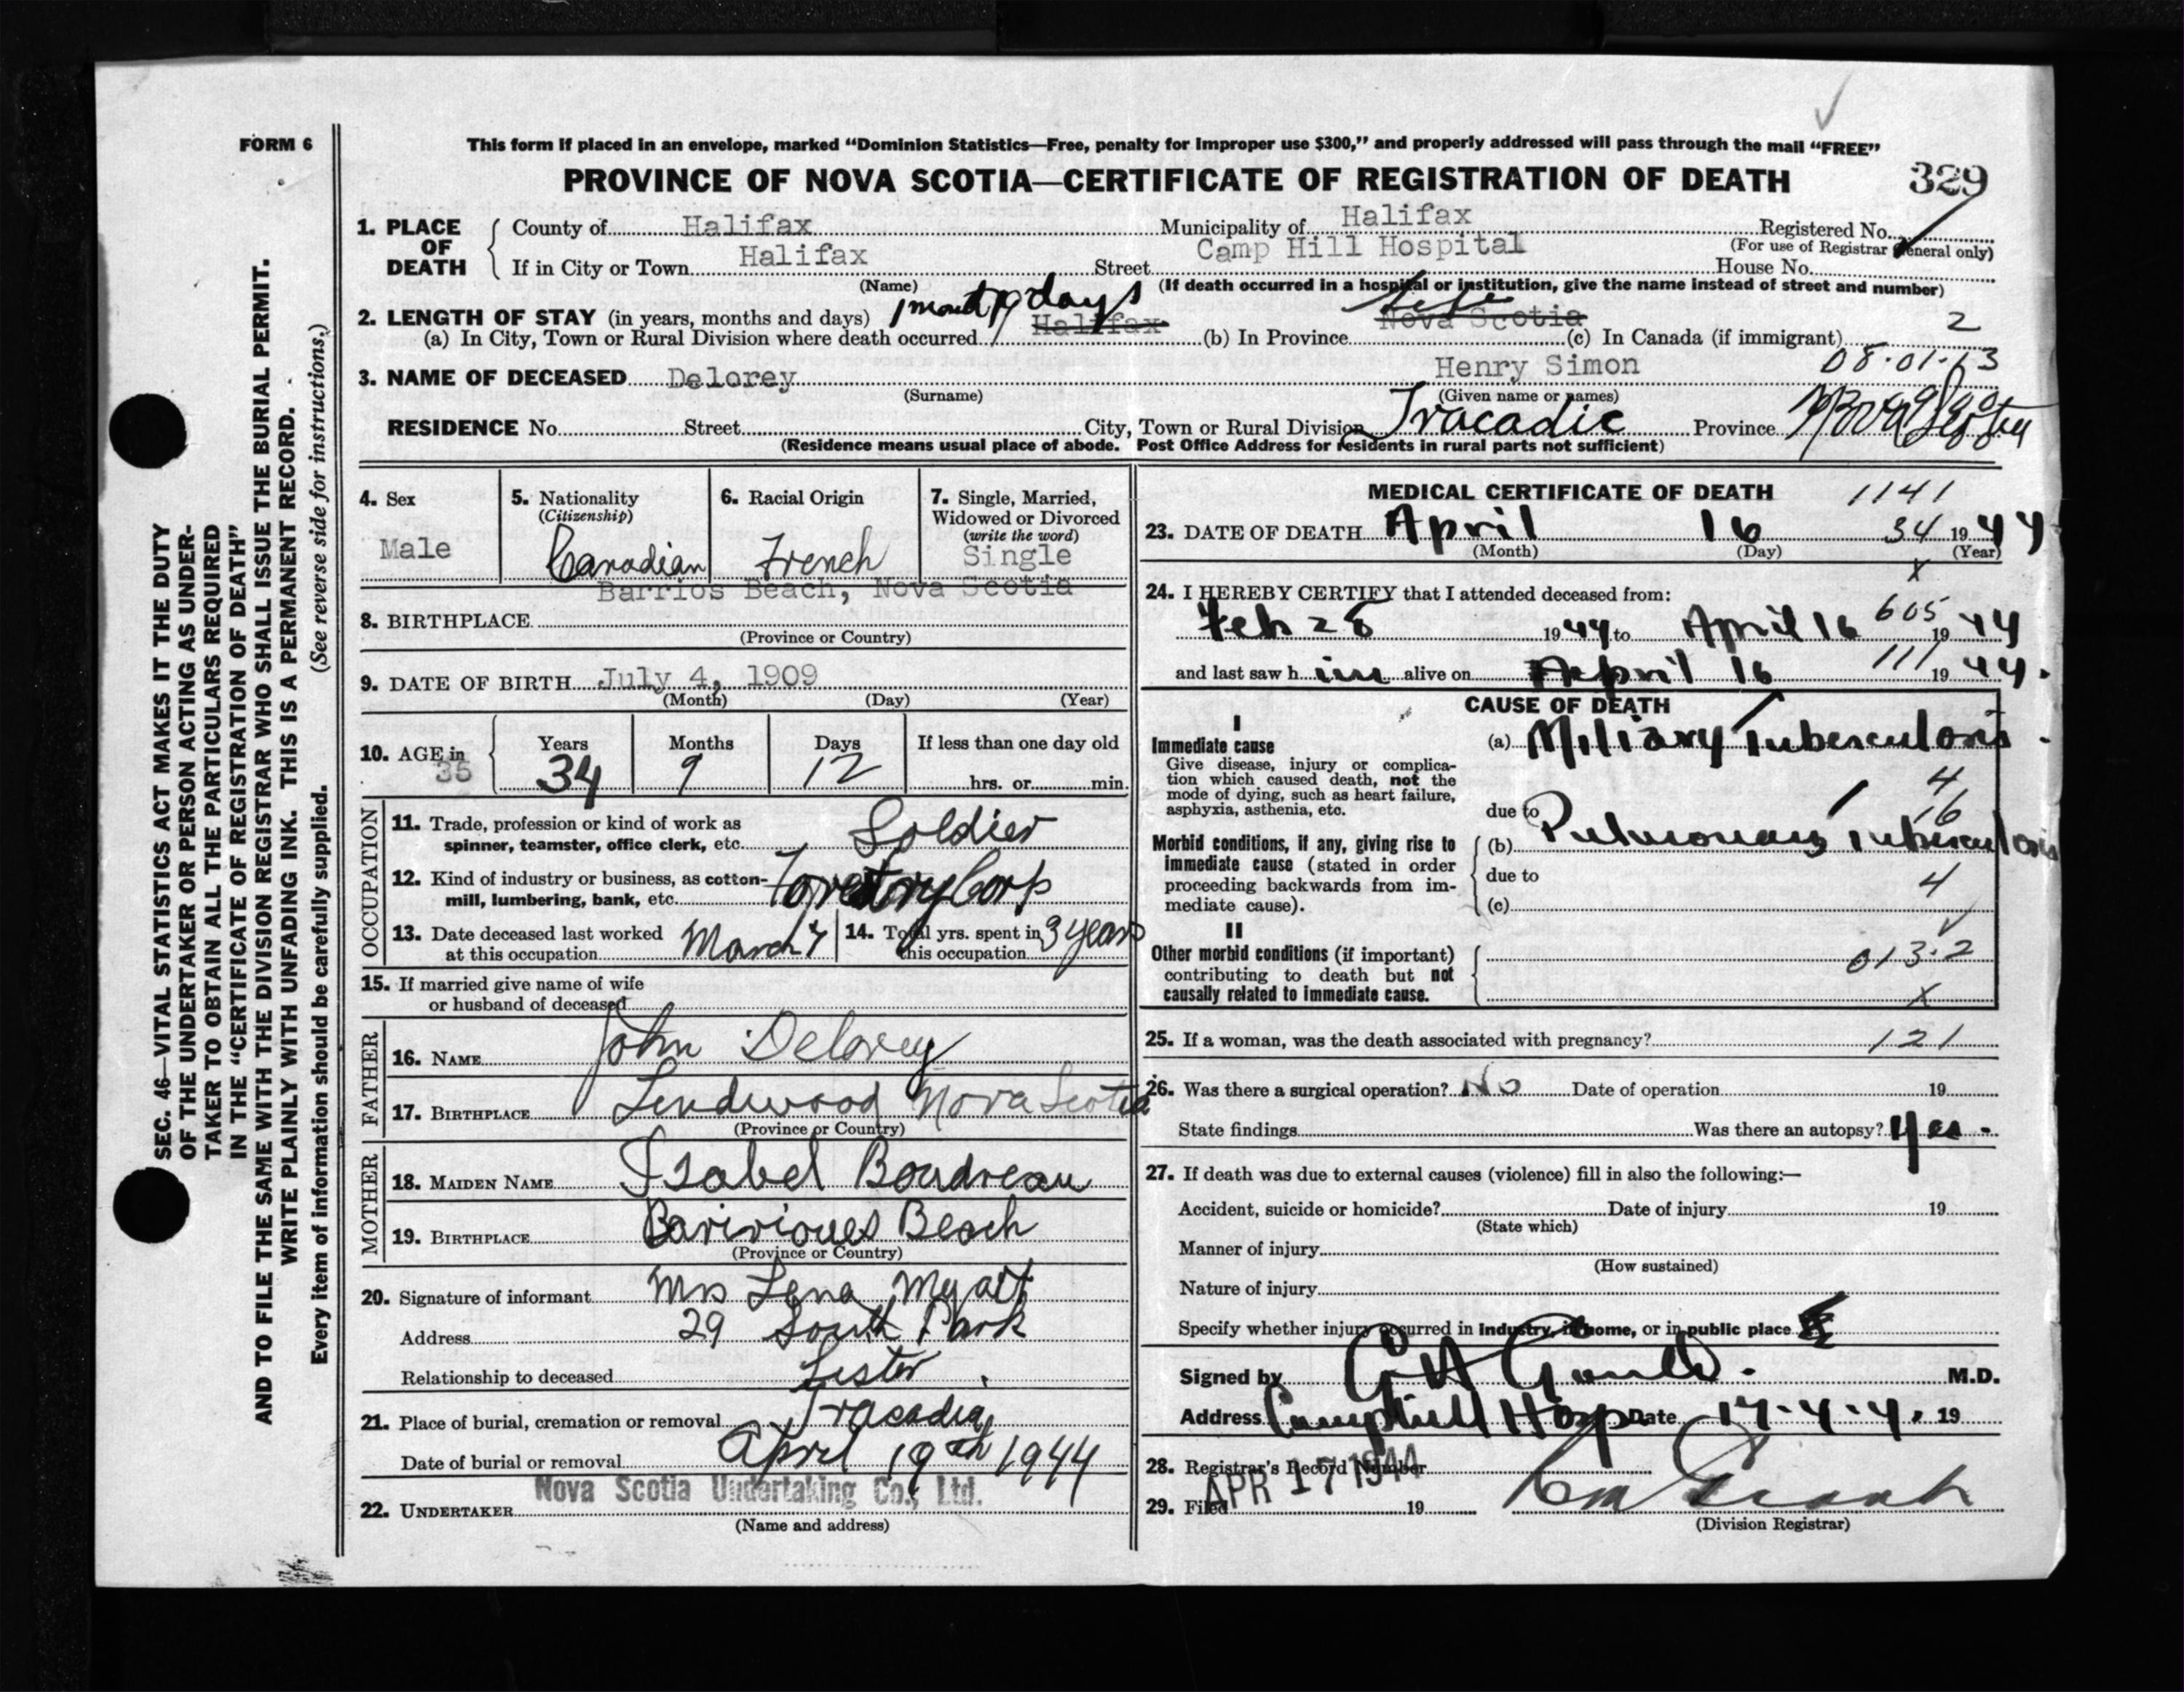 FORM 6
This form if placed in an envelope, marked "Dominion Statistics—Free, penalty for improper use $300," and properly addressed will pass through the mail "FREE"
PROVINCE OF NOVA SCOTIA—CERTIFICATE OF REGISTRATION OF DEATH
329
SEC. 46—VITAL STATISTICS ACT MAKES IT THE DUTY
OF THE UNDERTAKER OR PERSON ACTING AS UNDER-
TAKER TO OBTAIN ALL THE PARTICULARS REQUIRED
IN THE "CERTIFICATE OF REGISTRATION OF DEATH"
AND TO FILE THE SAME WITH THE DIVISION REGISTRAR WHO SHALL ISSUE THE BURIAL PERMIT.
WRITE PLAINLY WITH UNFADING INK. THIS IS A PERMANENT RECORD.
Every item of information should be carefully supplied. (See reverse side for instructions.)
1. PLACE OF DEATH
County of Halifax Municipality of Halifax Registered No.
(For use of Registrar General only)
If in City or Town Halifax Street Camp Hill Hospital House No.
(Name) (If death occurred in a hospital or institution, give the name instead of street and number)
2. LENGTH OF STAY (in years, months and days) 1 month 19 days
(a) In City, Town or Rural Division where death occurred Halifax (b) In Province Nova Scotia Life (c) In Canada (if immigrant) 2
3. NAME OF DECEASED Delorey Henry Simon 08.01.13
(Surname) (Given name or names)
RESIDENCE No. Street City, Town or Rural Division Tracadie Province Nova Scotia
(Residence means usual place of abode. Post Office Address for residents in rural parts not sufficient)
4. Sex Male
5. Nationality (Citizenship) Canadian
6. Racial Origin French
7. Single, Married, Widowed or Divorced (write the word) Single
8. BIRTHPLACE Barrios Beach, Nova Scotia
(Province or Country)
9. DATE OF BIRTH July 4, 1909
(Month) (Day) (Year)
10. AGE in 35 Years 34 Months 9 Days 12 If less than one day old
hrs. or min.
OCCUPATION
11. Trade, profession or kind of work as
spinner, teamster, office clerk, etc. Soldier
12. Kind of industry or business, as cotton-
mill, lumbering, bank, etc. Forestry Corp
13. Date deceased last worked
at this occupation March 4
14. Total yrs. spent in
this occupation 3 years
15. If married give name of wife
or husband of deceased
FATHER
16. NAME John Delorey
17. BIRTHPLACE Lindwood Nova Scotia
(Province or Country)
MOTHER
18. MAIDEN NAME Isabel Boudreau
19. BIRTHPLACE Barivioues Beach
(Province or Country)
20. Signature of informant Mrs Lena Myatt
Address 29 South Park
Relationship to deceased Sister
21. Place of burial, cremation or removal Tracadie
Date of burial or removal April 19th 1944
22. UNDERTAKER Nova Scotia Undertaking Co., Ltd.
(Name and address)
MEDICAL CERTIFICATE OF DEATH 1141
23. DATE OF DEATH April 16 34 1944
(Month) (Day) (Year)
x
24. I HEREBY CERTIFY that I attended deceased from:
Feb 28 1944 to April 16 605 1944
and last saw him alive on April 16 111 1944.
CAUSE OF DEATH
I
Immediate cause
Give disease, injury or complica-
tion which caused death, not the
mode of dying, such as heart failure,
asphyxia, asthenia, etc.
(a) Miliary Tuberculosis
4
16
due to
Morbid conditions, if any, giving rise to
immediate cause (stated in order
proceeding backwards from im-
mediate cause).
(b) Pulmonary Tuberculosis
due to
4
(c)
II
Other morbid conditions (if important)
contributing to death but not
causally related to immediate cause.
013.2
x
25. If a woman, was the death associated with pregnancy? 121
26. Was there a surgical operation? No Date of operation 19
State findings Was there an autopsy? Yes -
27. If death was due to external causes (violence) fill in also the following:—
Accident, suicide or homicide? Date of injury 19
(State which)
Manner of injury
(How sustained)
Nature of injury
Specify whether injury occurred in industry, in home, or in public place
Signed by M.D.
Address Camphill Hosp Date 17.4.4. 19
28. Registrar's Record Number
29. Filed APR 17 1944 19
(Division Registrar)